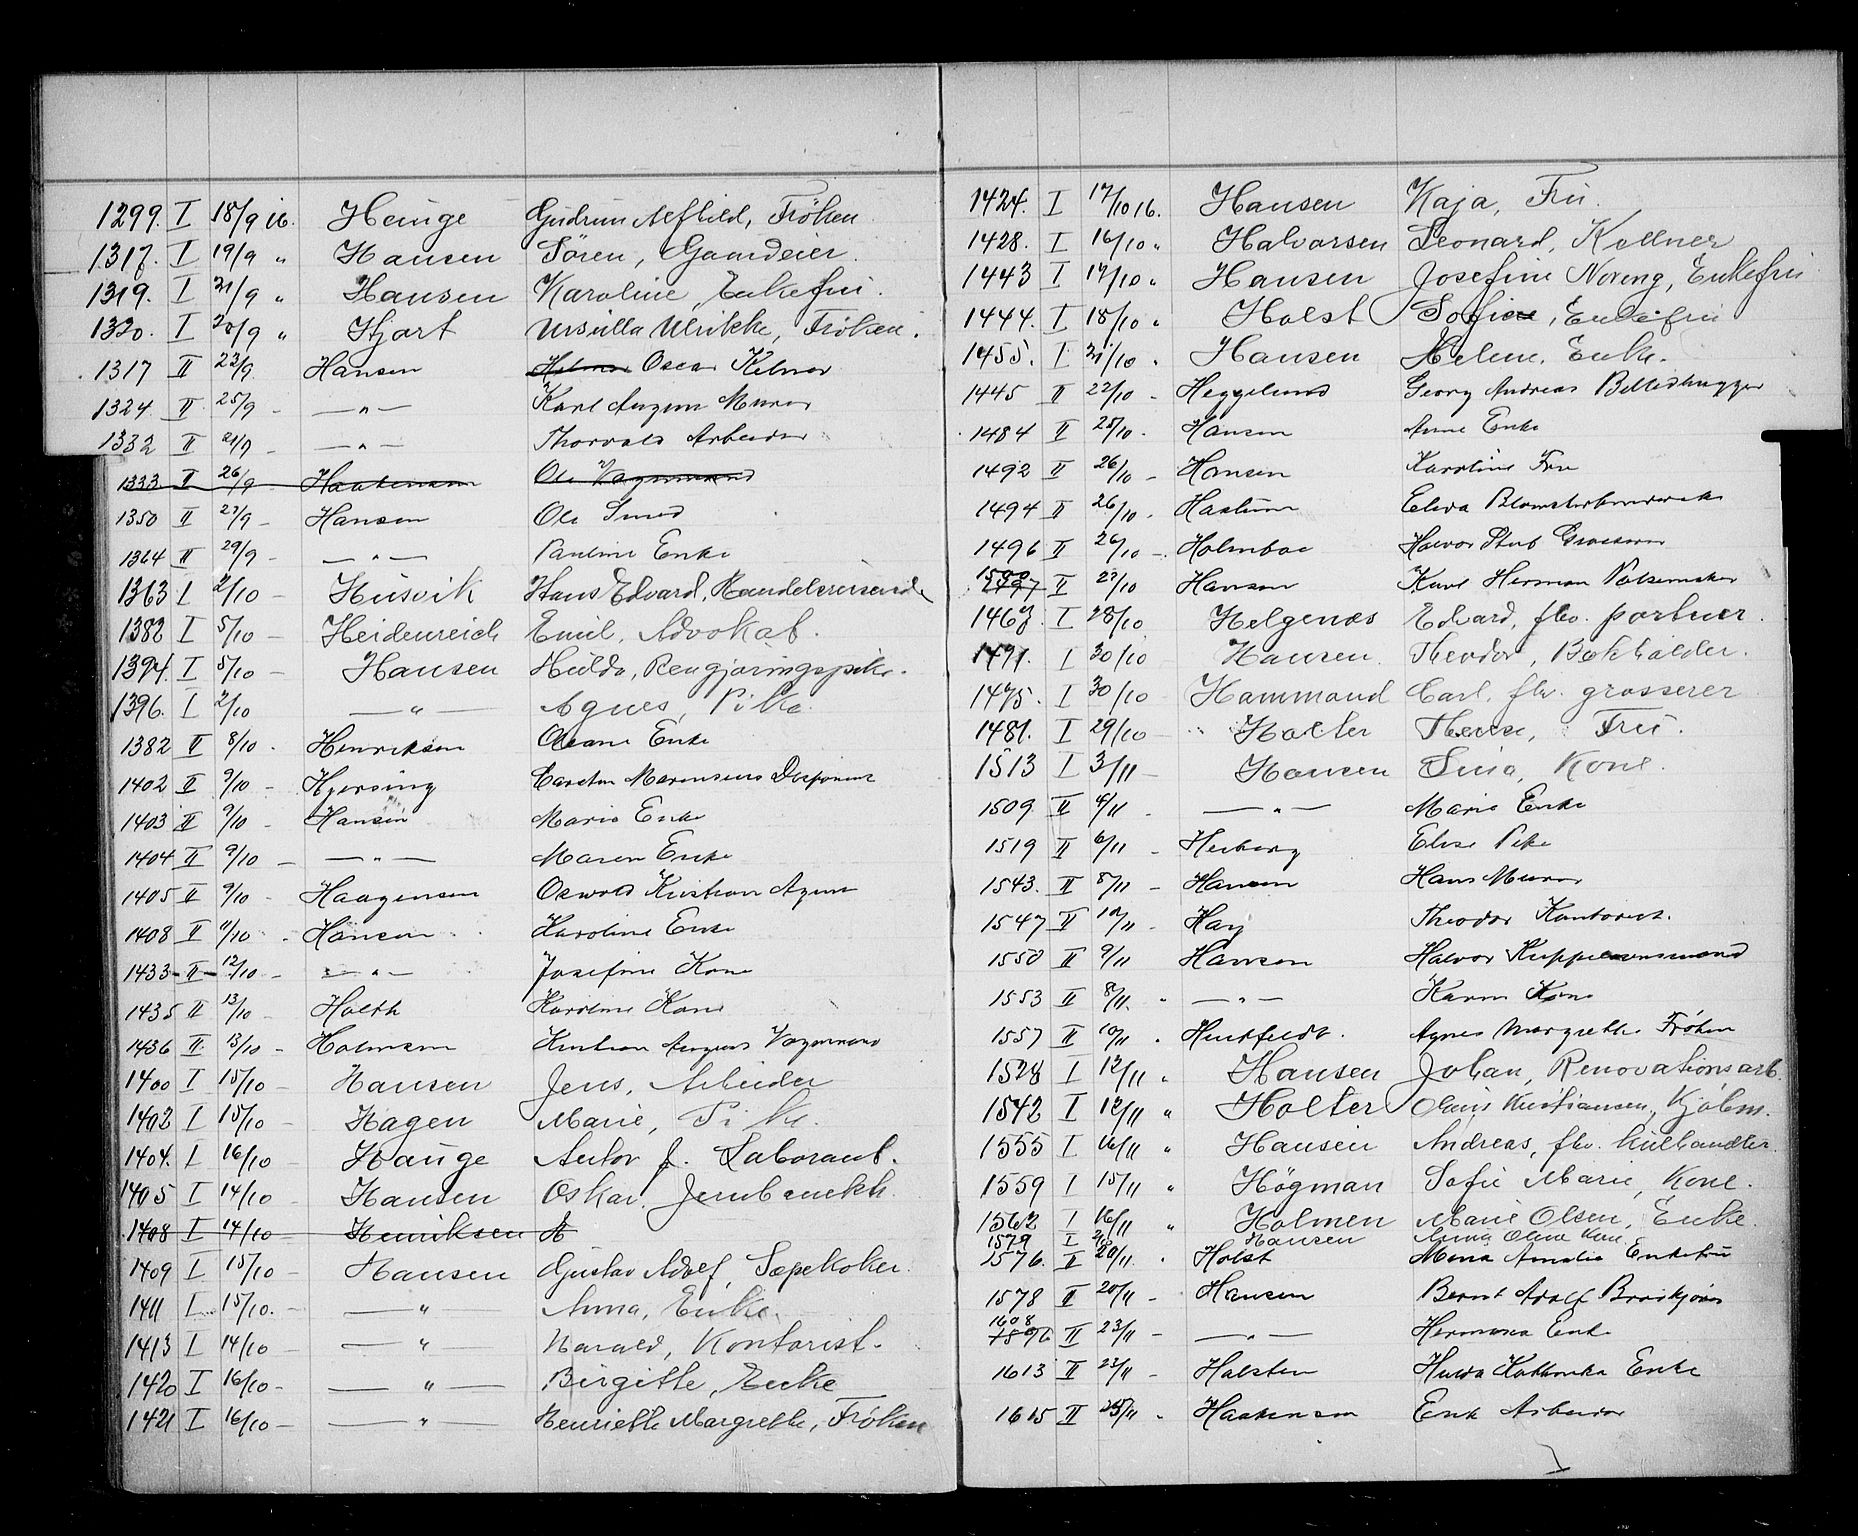 1299. I 18/9 16. Heuge Gudrun Alfhild, Frøken
1317. I 19/9 " Hansen Søren, Gaardeier.
1319. I 21/9 " Hansen Karoline, Enkefru.
1320. I 20/9 " Hjort Ursulla Ulrikke, Frøken.
1317 II 23/9. Hansen Oscar Kelner
1324 II 25/9 - — " — Karl August Murer
1332 II 21/9 - — " — Thorvald Arbeider
1333 II 26/9 Haakensen Ole Vognmand
1350 II 27/9 - Hansen Ole Smed
1364 II 29/9 - — " — Pauline Enke
1363 I 2/10 - Husvik Hans Edvard, Handelsreisende
1382 I 5/10 - Heidenreich Emil, Advokat.
1394. I 5/10 - Hansen Hulda, Rengjøringspike.
1396. I 2/10 — " — Agnes, Pike
1382 II 8/10 . Henriksen Oleane Enke
1402 II 9/10 - Hjersing Carsten Marensius Disponent
1403 II 9/10 - Hansen Marie Enke
1404 II 9/10 - — " — Maren Enke
1405 II 9/10 - Haagensen Oswald Kristian Agent
1408 II 11/10 . Hansen Karoline Enke
1433 - II - 12/10 - — " — Josefine Kone
1435 II 13/10 - Holth Karoline Kone
1436 II 13/10 - Holmsen Kristian August Vognmand
1400 I 15/10 - Hansen Jens, Arbeider
1402 I 15/10 - Hagen Marie, Pike.
1404. I 16/10 - Hauge Anton J. Laborant.
1405 I 14/10 - Hansen Oskar, Jernbanekh.
1408 I 14/10 - Henriksen A
1409 I 15/10 - Hansen Gustav Adolf, Sæpekoker.
1411 I 15/10. - — " — Anna, Enke.
1413 I 14/10 — " — Harald, Kontorist.
1420 I 16/10 - — " — Birgitte, Enke
1421 I 16/10 - — " — Henriette Margrethe, Frøken
1424. I 17/10 16. Hansen Kaja, Fru.
1428. I 16/10 " Halvorsen Leonard, Kellner
1443 I 17/10 " Hansen Josefine Noreng, Enkefru
1444. I 18/10 " Holst Sofie, Enkefru
1455. I 21/10 . Hansen Helene, Enke.
1445 II 22/10 - Heggelund Georg Andreas Billedhugger
1484 II 25/10 . Hansen Anne Enke
1492 II 26/10 - Hansen Karoline Fru
1494 II 26/10 . Haslum Elida
1496 II 26/10 - Holmboe Halvor Stub Grosserer
1500 1497 II 27/10 Hansen Karl Herman Pølsemaker
1463. I 28/10 Helgenæs Edvard, fhv. portner.
1471. I 30/10 Hansen. Theodor, Bokholder.
1475. I 30/10 Hammond Carl, fhv. grosserer
1481. I 29/10 - Holter Therese, Fru.
1513 I 3/11 - Hansen Lina, Kone.
1509. II 6/11 . — " — Marie Enke
1519 II 6/11 - Heiberg Elise Pike
1543. II 8/11 - Hansen Hans Murer
1547 II 10/11 - Hay Theodor Kontorist.
1550 II 9/11 - Hansen Halvor
1553 II 8/11. " — " — Karen Kone
1557 II 10/11 . Huitfeldt. Agnes Margrethe Frøken
1528 I 12/11 " Hansen Johan, Renovationsarb.
1542 I 12/11 " Holter Olaus Kristiansen, Kjøbm.
1555 I 16/11 " Hansen Andreas, fhv. kulhandler.
1559 I 15/11 " Høgman Sofie Marie, Kone.
1562 I 16/11 " Holmen Marie Olsen, Enke.
1579 I Hansen Anna Oline Kone.
1576. II 20/11 . Holst Mina Amalie Enkefru
1578 II 20/11 - Hansen Bernt Adolf
1608 1596 II 23/11 - — " — Hermana Enke
1613 II 22/11 - Halsten Hulda Kathinka Enke
1615 II 25/11 . Haakensen Erik Arbeider